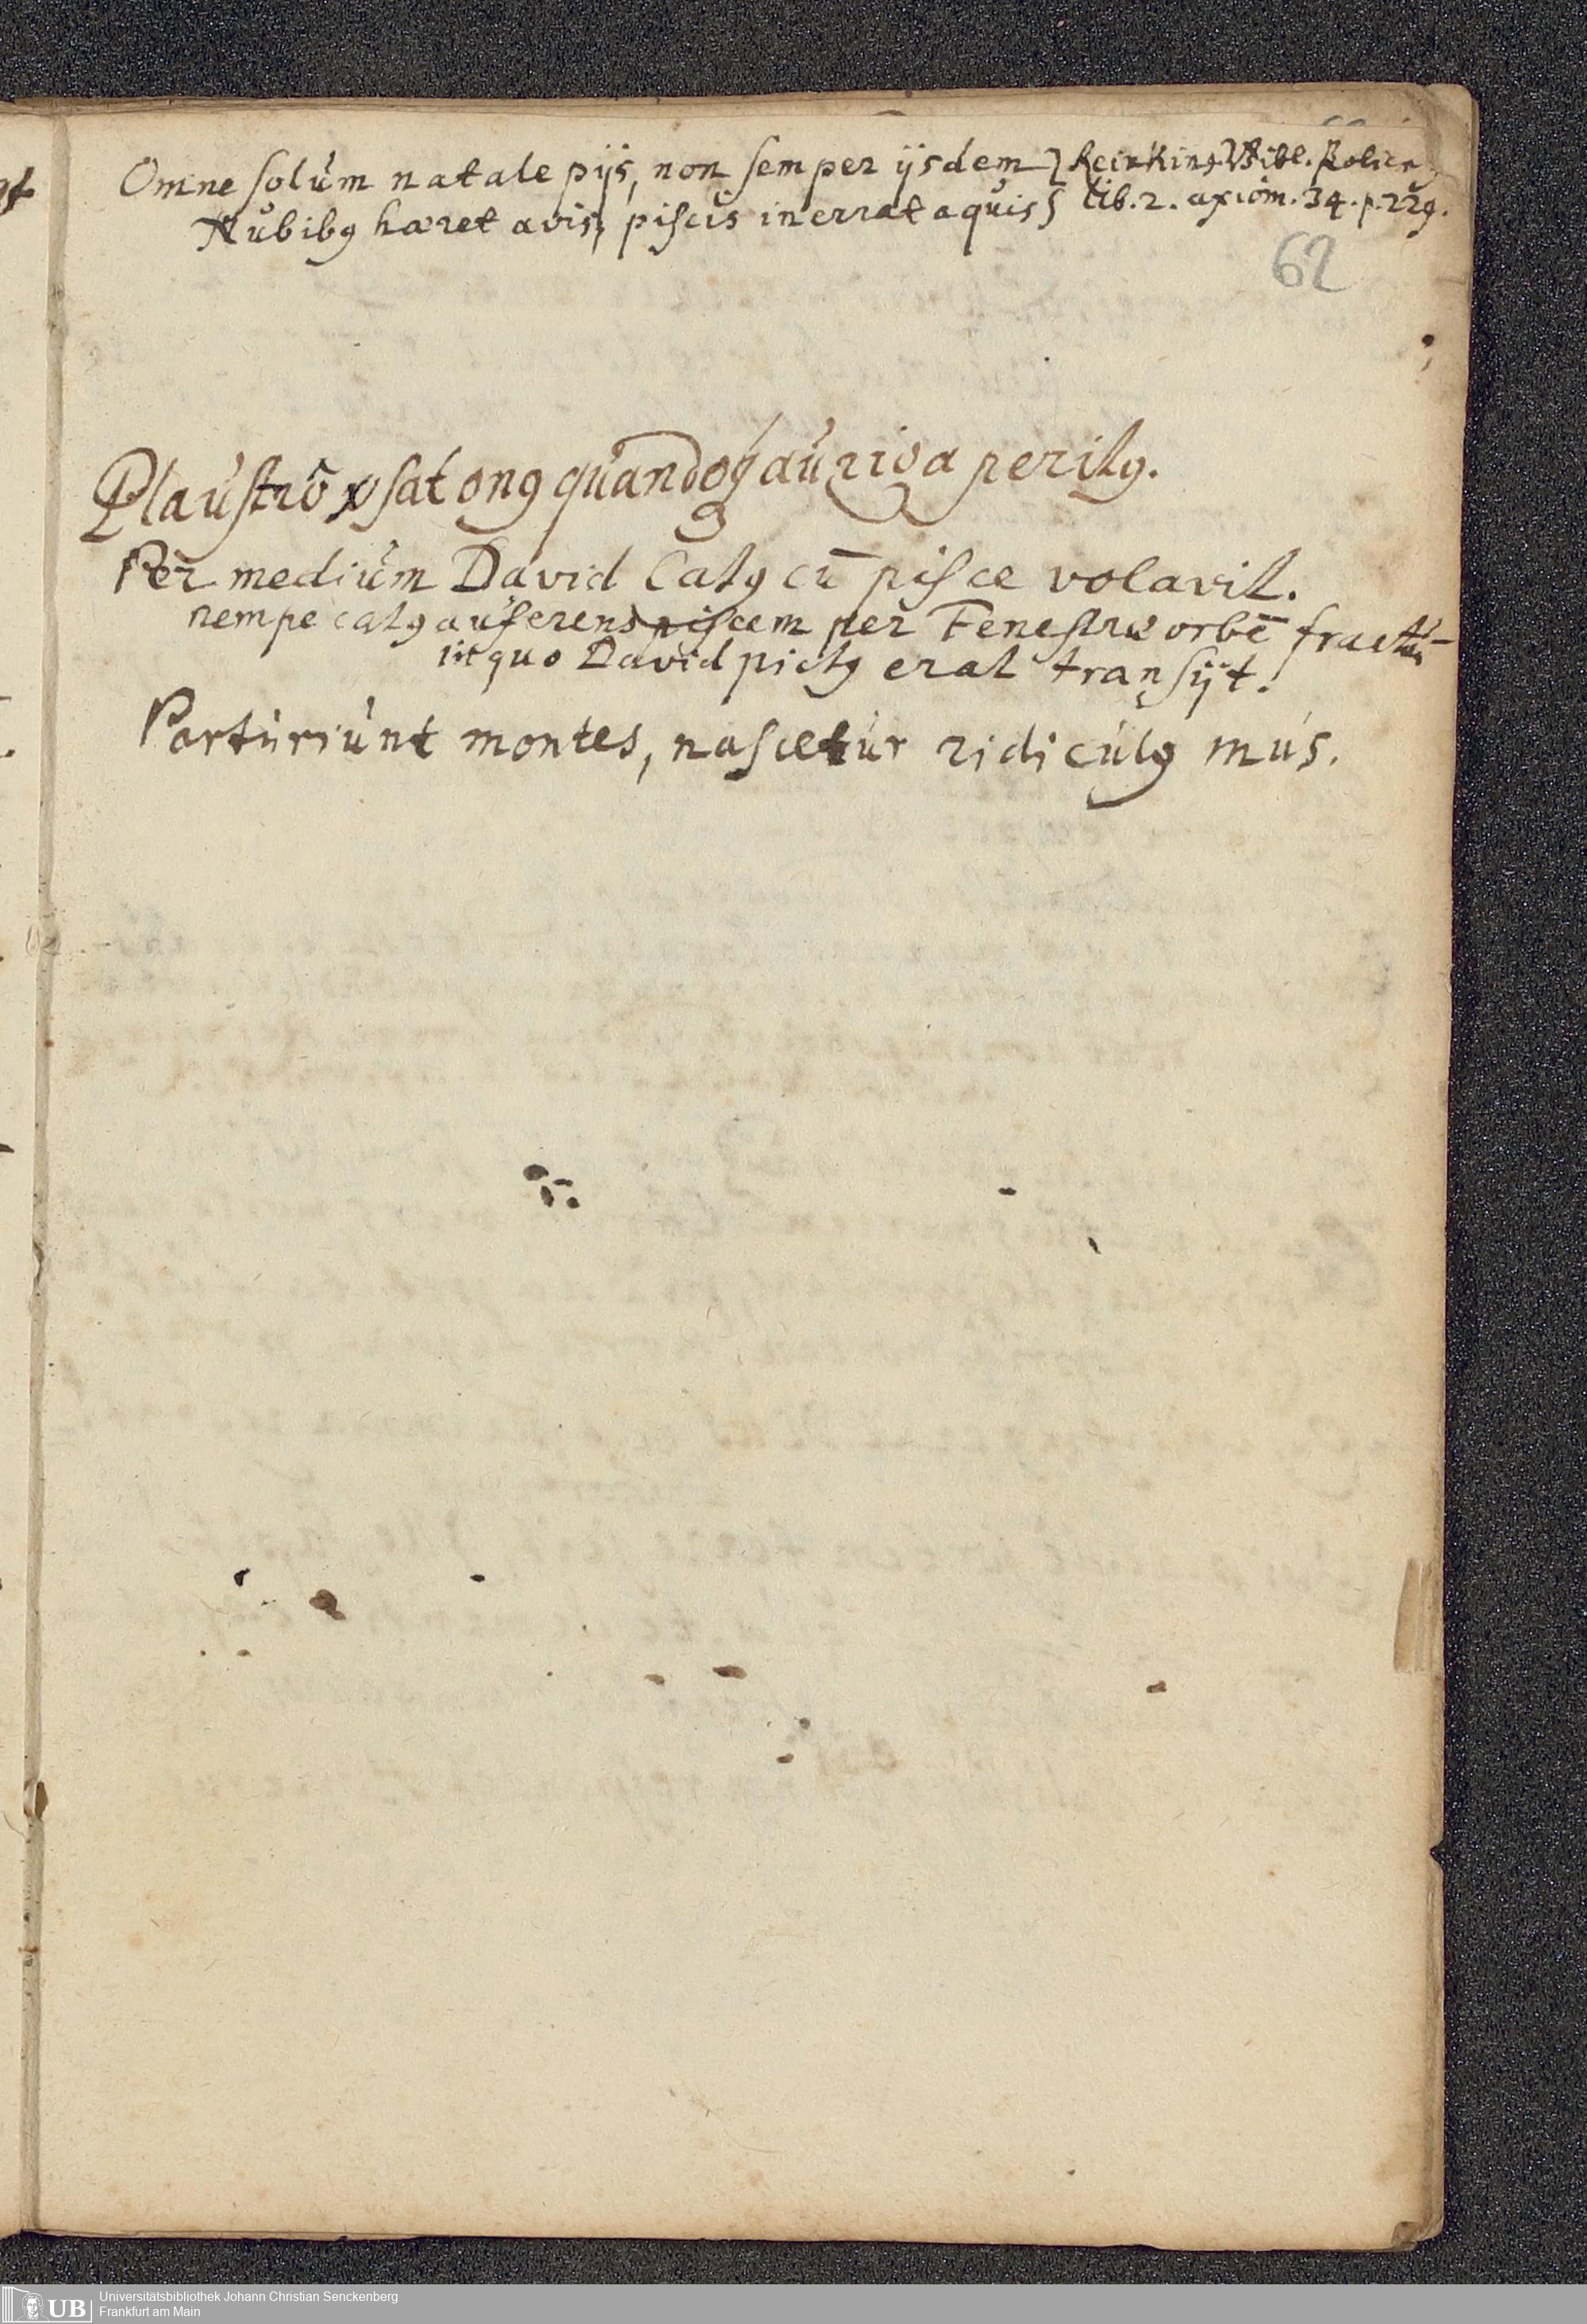 Omne solum natale pijs, non semper ijsdem } Reinking Bibl. Policey
Nubibꝯ hæret avis, piscis inerrat aquis } lib. 2. axiom. 34. p. 229.
62
Plaustrō sat onꝯ quandoqꝫ auriga peritꝯ.
Per medium David Catꝯ cū pisce volavit.
nempe catꝯ auferens piscem per Fenestræ orbē fractū
in quo David pictꝯ erat transijt.
Parturiunt montes, nascetur ridiculꝯ mus.
UB Universitätsbibliothek Johann Christian Senckenberg
Frankfurt am Main